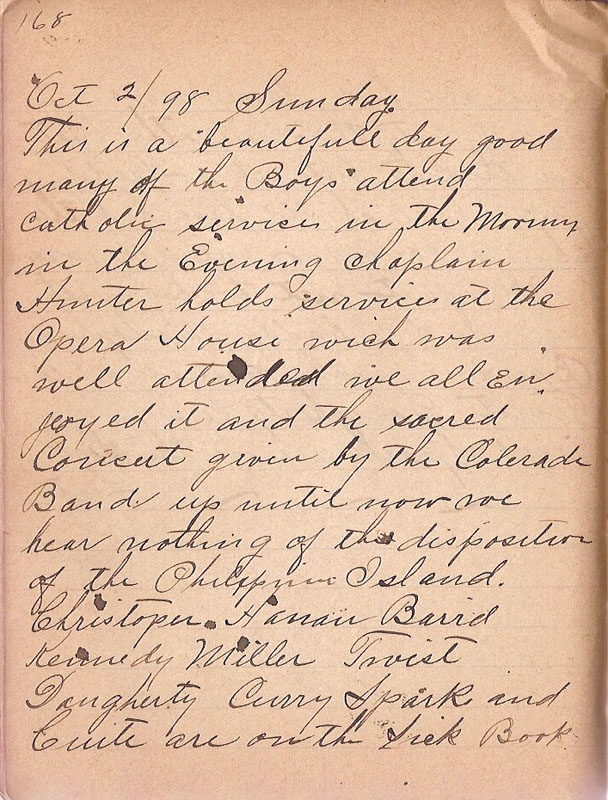 168
Oct 2/98 Sunday
This is a beautifull day good
many of the Boys attend
catholic services in the Morning
in the Evening Chaplain
Hunter holds services at the
Opera House wich was
well attended we all En
joyed it and the sacred
Concert given by the Colerado
Band. up until now we
hear nothing of the disposition
of the Philippine Island.
Christoper Hanan
Kennedy Miller Twist
Daugherty Curry Spark and
are on the Sick Book